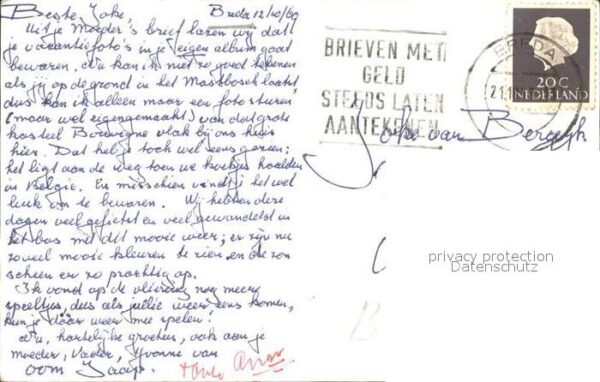 Beste Joke, Breda 12/10/69
Uit je Moeder's brief lazen wij dat
je vacantiefoto's in je eigen album gaat
bewaren, nu kan ik niet zo goed tekenen
als jij op de grond in het Mastbosch laatst,
dus kan ik alleen maar een foto sturen
(maar wel eigengemaakt) van dat grote
kasteel Bouvigne vlak bij ons huis
hier. Dat heb je toch wel eens gezien;
het ligt aan de weg toen we koekjes haalden
in België. En misschien vindt je het wel
leuk om te bewaren. Wij hebben deze
dagen veel gefietst en veel gewandeld in
het bos met dit mooie weer; er zijn nu
zoveel mooie kleuren te zien, en de zon
scheen en zo prachtig op.
Ik vond op de vliering nog meer
speeltjes, dus als jullie weer eens komen,
kun je daar weer mee spelen!
Nu, hartelijke groeten, ook aan je
moeder, Vader, Yvonne van
oom Jaap.
BRIEVEN MET
GELD
STEEDS LATEN
AANTEKENEN
BREDA
20 C
NEDERLAND
Joke van Bergeyk
privacy protection
Datenschutz